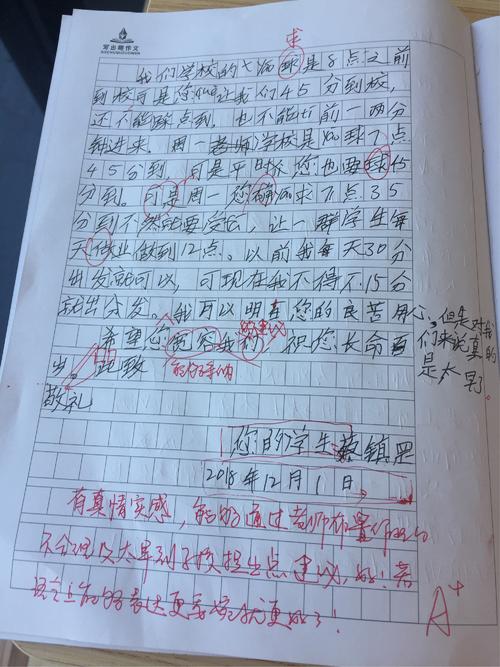 写出趣作文
求
我们学校的要球是8点之前
到校可是您让我们45分到校,
还不能踩点到,也不能前一两分
钟进来。周一学校是要球7点
45分到,可是平时你您也要球45
分到。可是周一您确要求7点35
分到不然就要受,让一群学生每
天做业做到12点。以前我每天30分
出发就可以,可现在我不得不15分
就出分发。我可以明白您的良苦用心,但是对
我们来说真的是太早了
希望您宽容我们,祝您长命百
岁。此致
能够采纳
建议
敬礼
您的学生 镇
2018年12月1日
有真情实感,能够通过老师布置作业的
不合理及太早到校提出点建议,好!若
语言上能够表达更就更好了!
A+